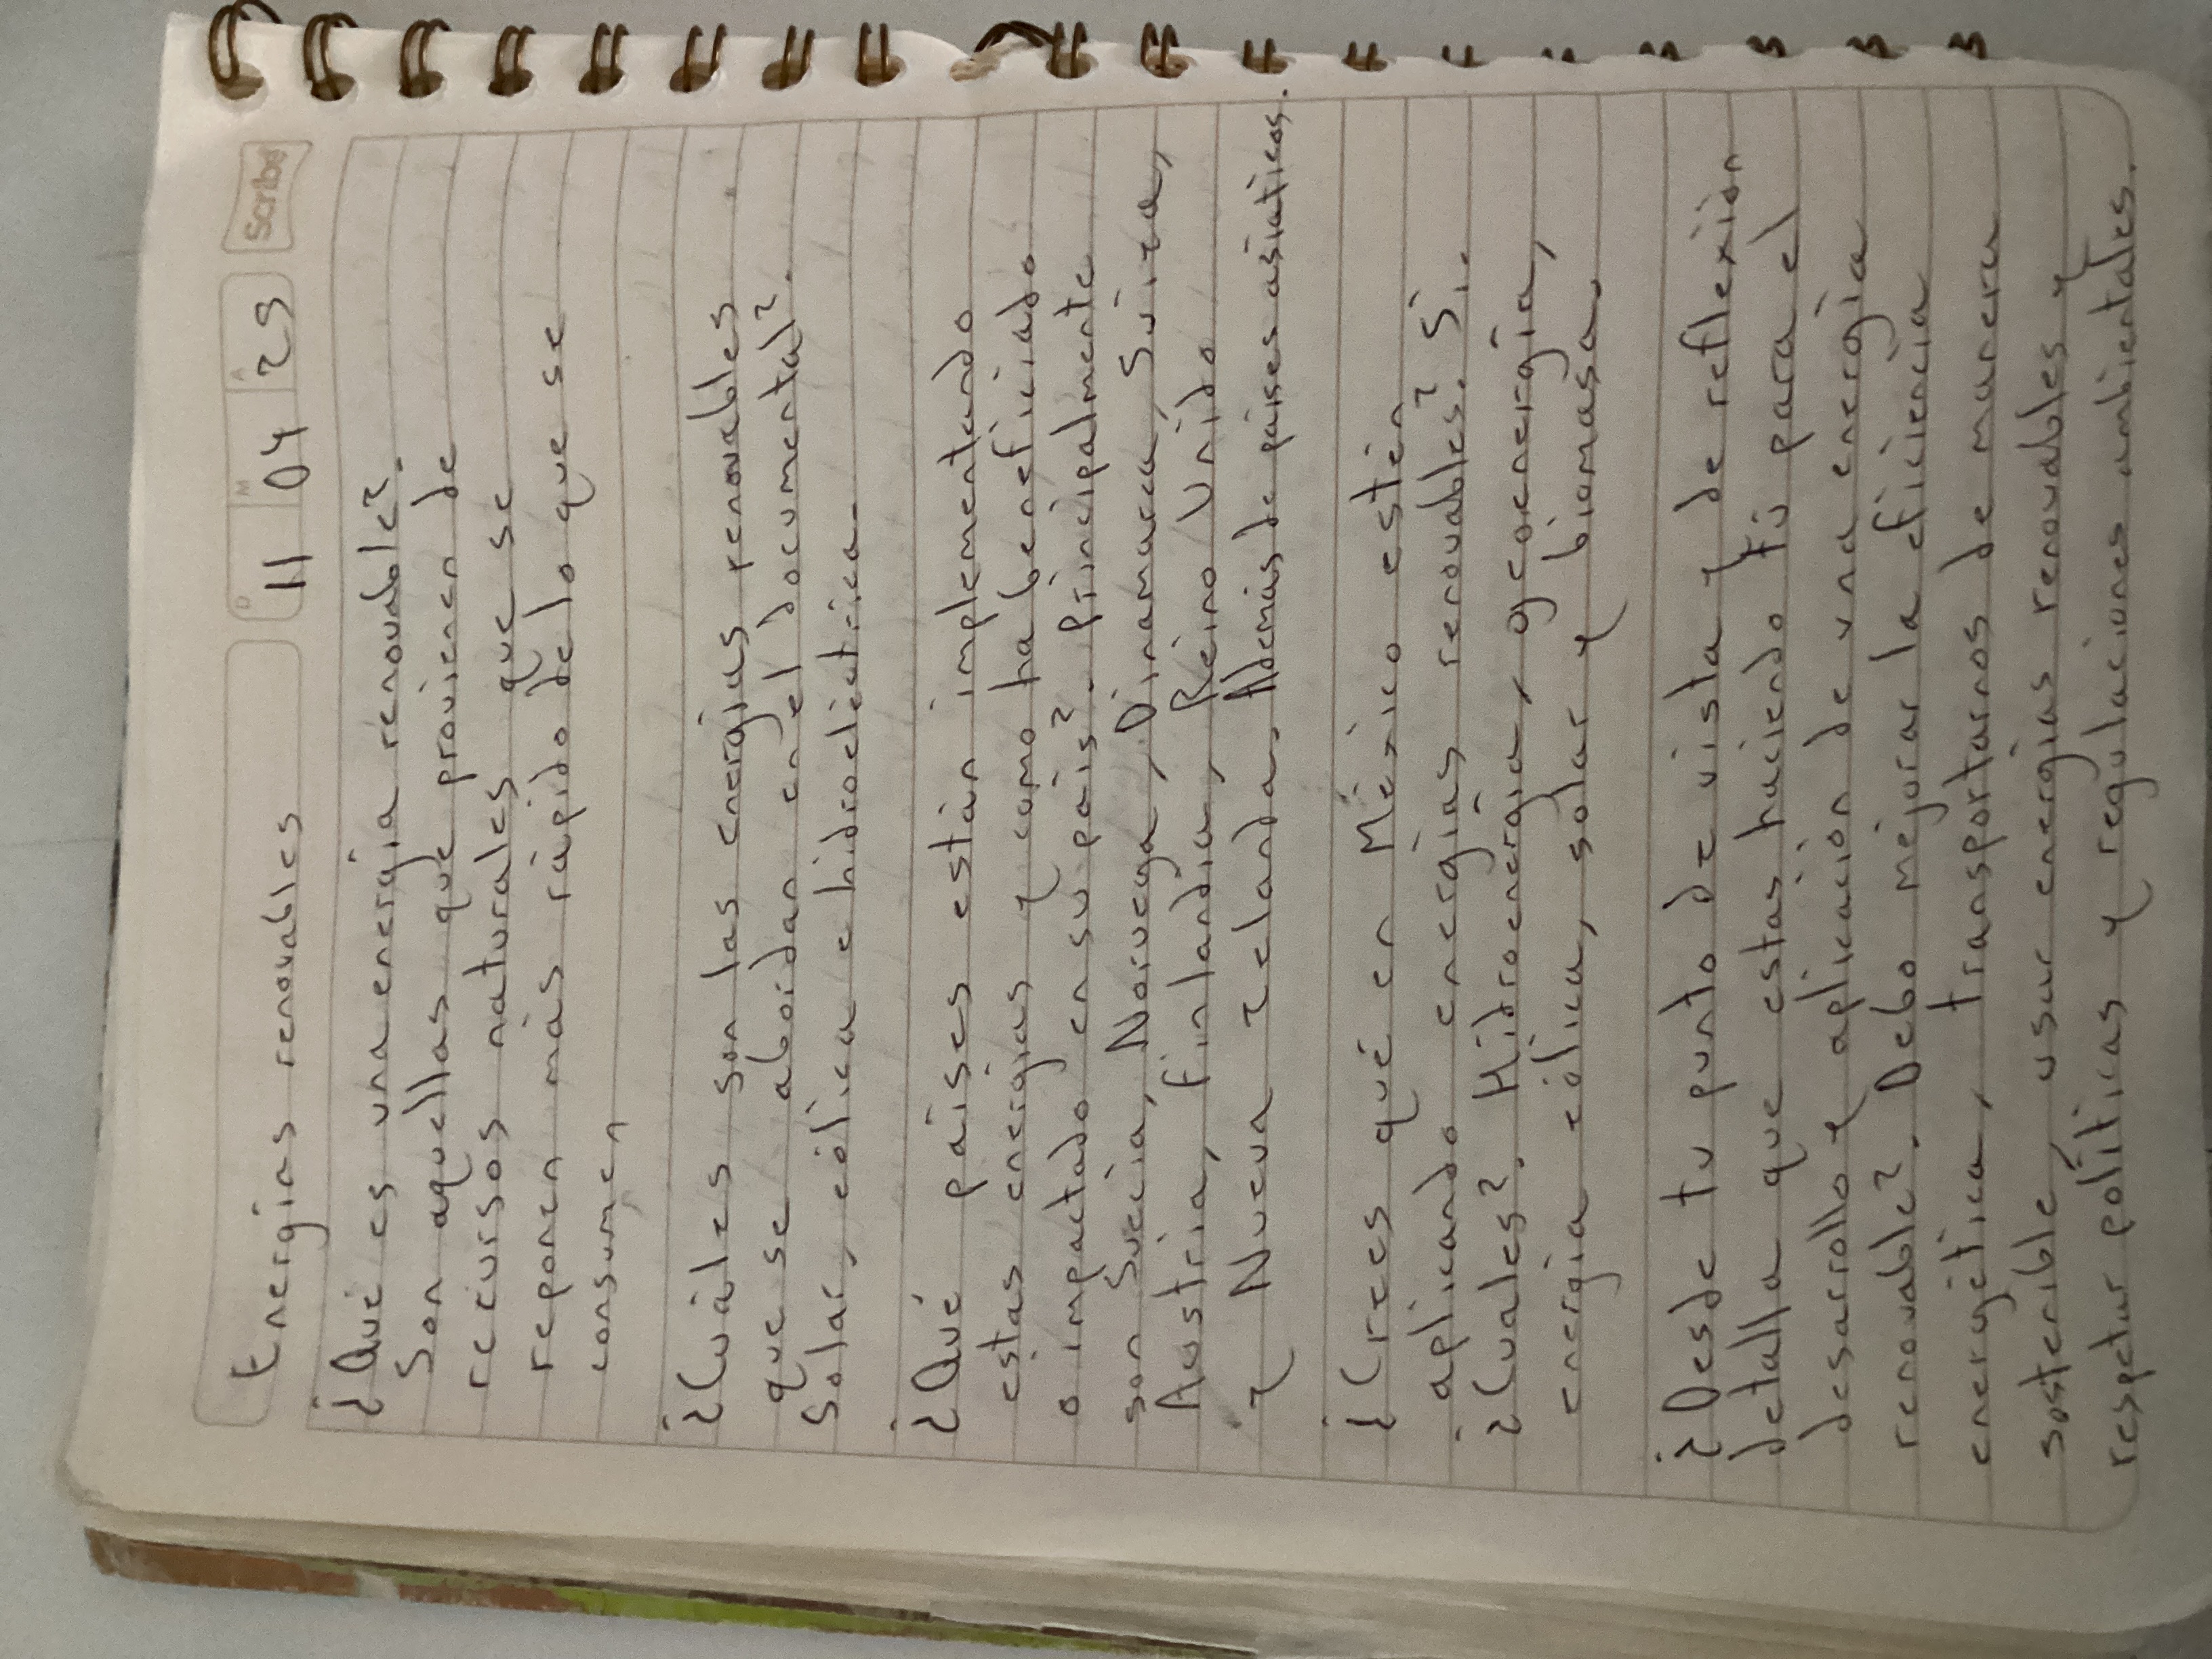 Energias renovables
D M A
11 04 25
Scribe
¿Qué es una energia renovable?.
Son aquellas que provienen de
recursos naturales que se
reponen más rápido de lo que se
consumen
¿Cuáles son las energias renovables
que se abordan en el documental?.
Solar, eólica e hidroeléctrica.
¿Qué paises están implementando
estas energias y como ha beneficiado
o impactado en su pais?. Principalmente
son Suecia, Noruega, Dinamarca, Suiza,
Austria, Finlandia, Reino Unido
y Nueva Zelanda. Además de paises asiaticos.
¿Crees qué en México estén
aplicando energias renovables?. Si.
¿Cuales?. Hidroenergia,
energia eólica, solar y biomasa.
¿Desde tu punto de vista y de reflexión
detalla que estas haciendo tú para el
desarrollo y aplicación de una energia
renovable?. Debo mejorar la eficiencia
energética, transportarnos de manera
sostenible, usar energias renovables y
respetar políticas y regulaciones ambientales.